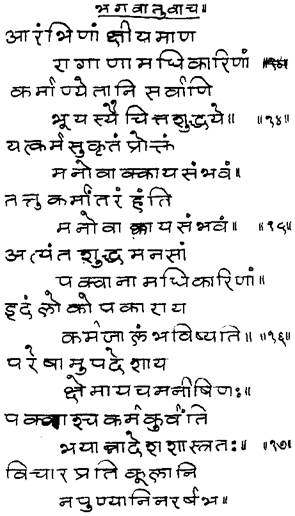 भगवानुवाच॥
आरंभिणां क्षीयमाण
रागाणामधिकारिणां
कर्माण्येतानि सर्वाणि
भूयस्यै चित्तशुद्धये॥ १४॥
यत्कर्मसुकृतं प्रोक्तं
मनोवाक्कायसंभवं।
तत्तु कर्मांतरं हंति
मनोवाक्कायसंभवं॥ १५॥
अत्यंत शुद्ध मनसां
पक्वानामधिकारिणां॥
इदं लोकोपकाराय
कर्मजालं भविष्यति॥ १६॥
परेषामुपदेशाय
क्षेमायचमनीषिणः॥
पक्वाश्च कर्मकुर्वंति
भयान्नादेशशास्त्रतः॥ १७॥
विचार प्रतिकूलानि
नपुण्यानिनरर्षभ॥